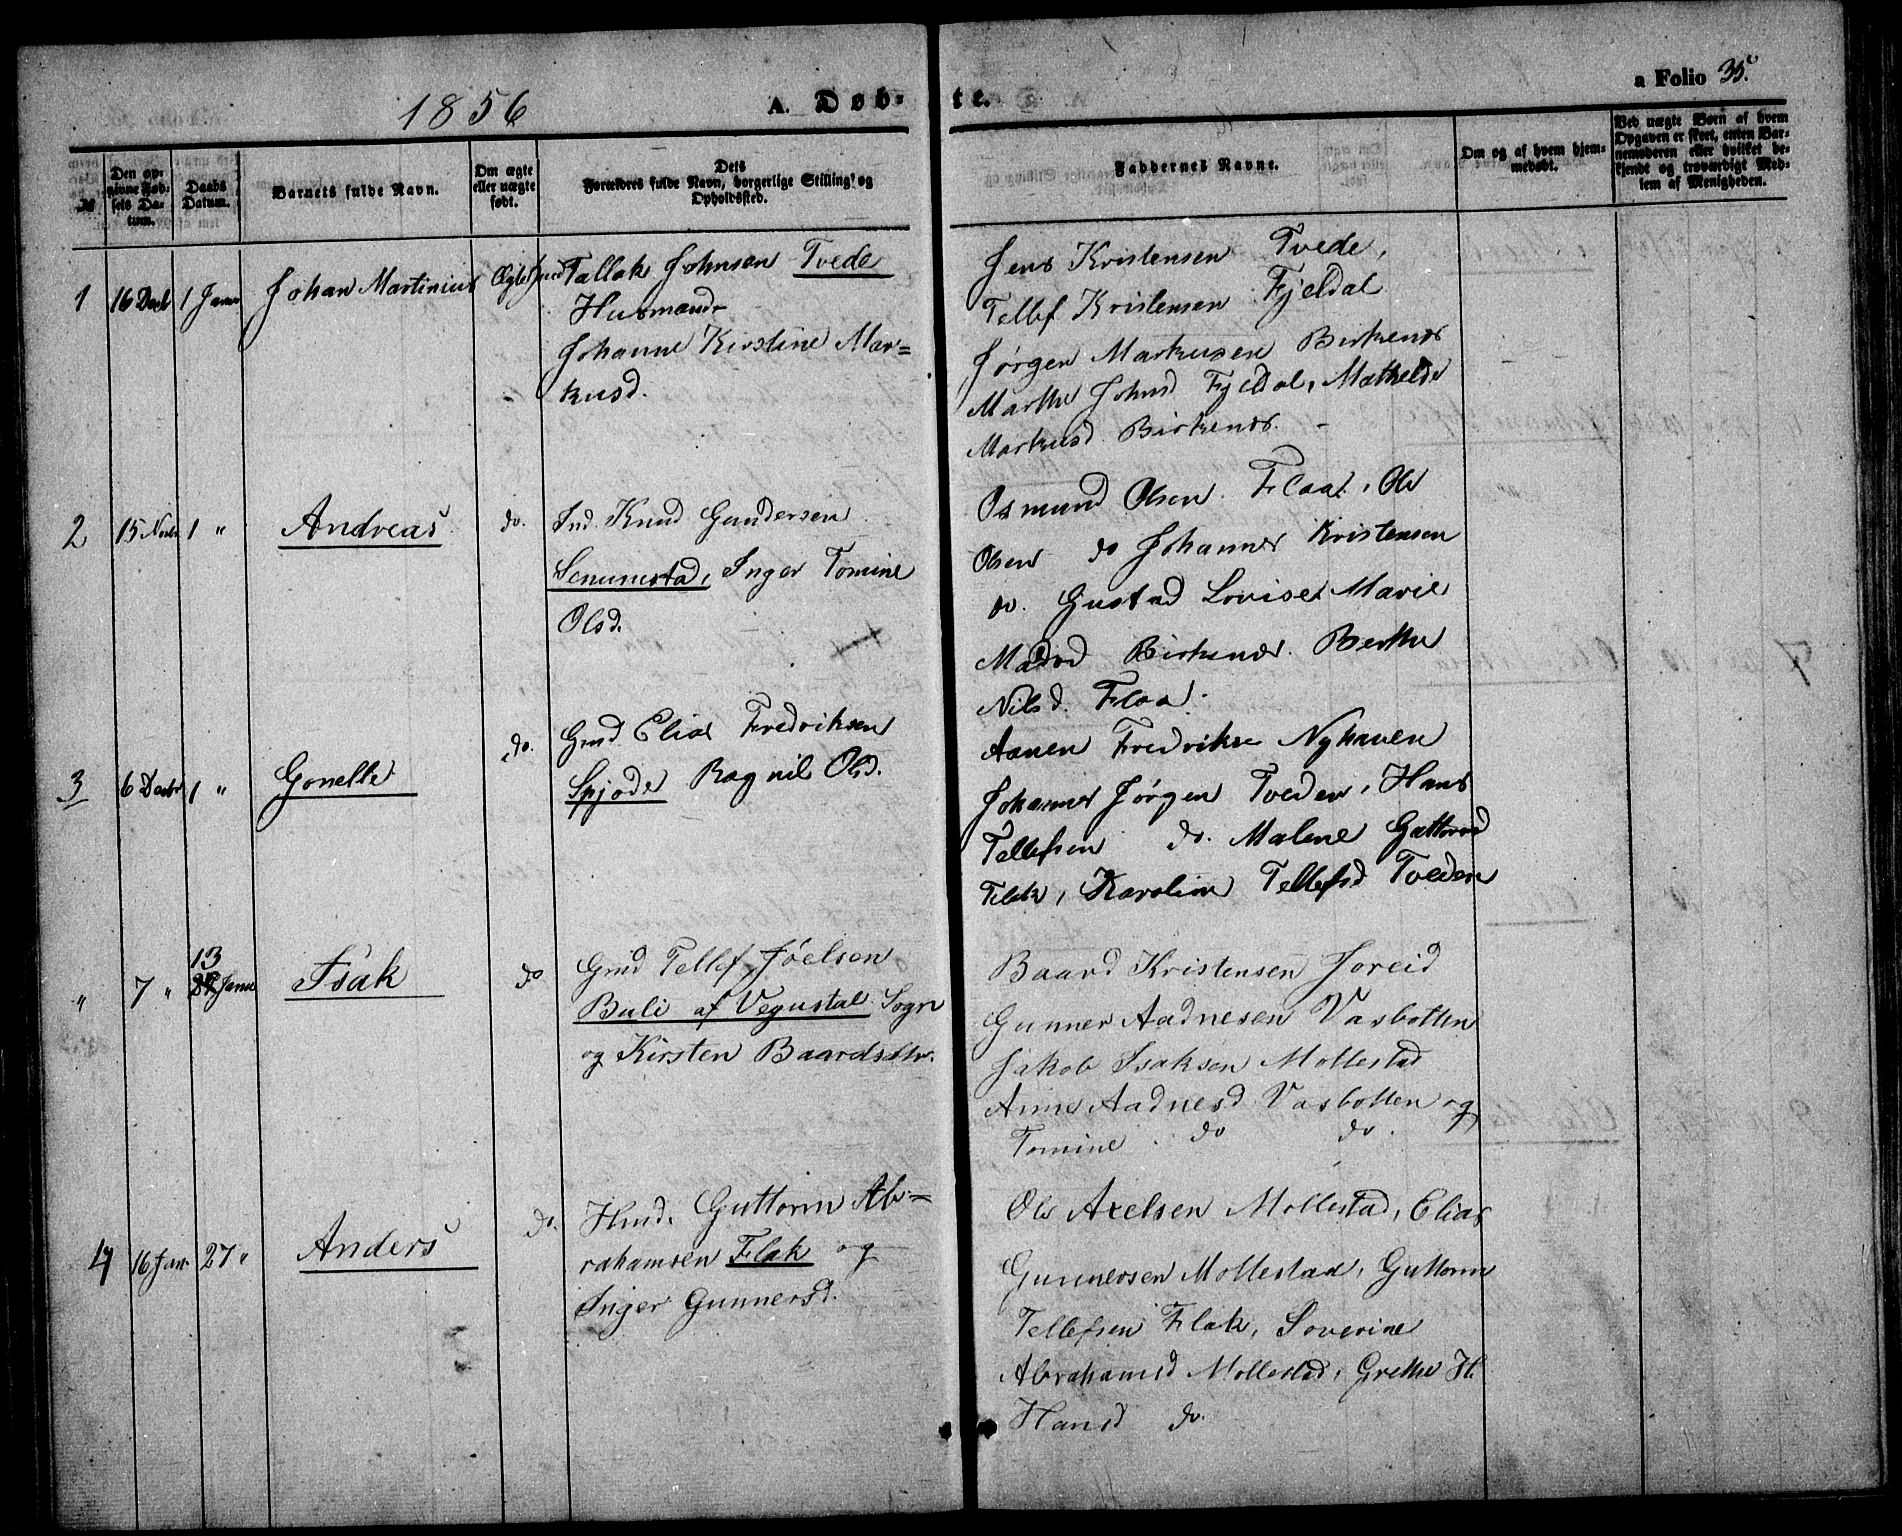 1856
A. Døb-
te.
a Folio 35.
№
Den op-
givne Fød-
sels Da-
tum.
Daabs
Datum.
Barnets fulde Navn.
Om ægte
eller uægte
født.
Dets
Forældres fulde Navn, borgerlige Stilling og
Opholdssted.
Faddernes Navne.
Om og af hvem hjem-
medøbt.
Ved uægte Børn af hvem
Opgaven er skeet, enten Bar-
nemoderen eller hvilket be-
kjendt og troværdigt Med-
lem af Menigheden.
1 16 Decb 1 Januar Johan Martinius Ægte Tallak Johnsen Tvede
Husmand
Johanne Kirstine Mar=
kusd.
Jens Kristensen Tvede,
Tellef Kristensen Fjeldal
Jørgen Markusen Birkenes
Marthe Johnsd Fjeldal, Mathelde
Markusd Birkenes.
2 15 Novbr 1 " Andreas do. Ind. Knud Gundersen
Senumstad, Inger Tomine
Olsd.
Osmund Olsen Flaa, Ole
Olsen do Johannes Kristensen
do. Gustad Lovise Marie
Madsd Birkenes. Berthe
Nilsd. Flaa.
3 6 Decbr 1 " Gonelle do. Gmd Elias Fredriksen
Spjode Ragnil Olsd.
Aanen Fredrikse Nyhaven
Johannes Jørgen Tveden, Hans
Tellefsen do. Malene Guttormsd
Flak, Karoline Tellefsd Tveden
" 7 " 13 Janu Isak do Gmd Tellef Joelsen
Buli af Vegusdal Sogn
og Kirsten Baardsdtr.
Baard Kristensen Joreid
Gunner Aadnesen Vasbotten
Jakob Isaksen Mollestad
Anne Aadnesd Vasbotten og
Tomine do do.
4 16 Jan. 27 " Anders do. Hmd. Guttorm Ab=
rahamsen Flak og
Inger Gunnersd.
Ole Axelsen Mollestad, Elias
Gunnersen Mollestad, Guttorm
Tellefsen Flak, Soverine
Abrahamsd Mollestad, Grethe H.
Hansd do.